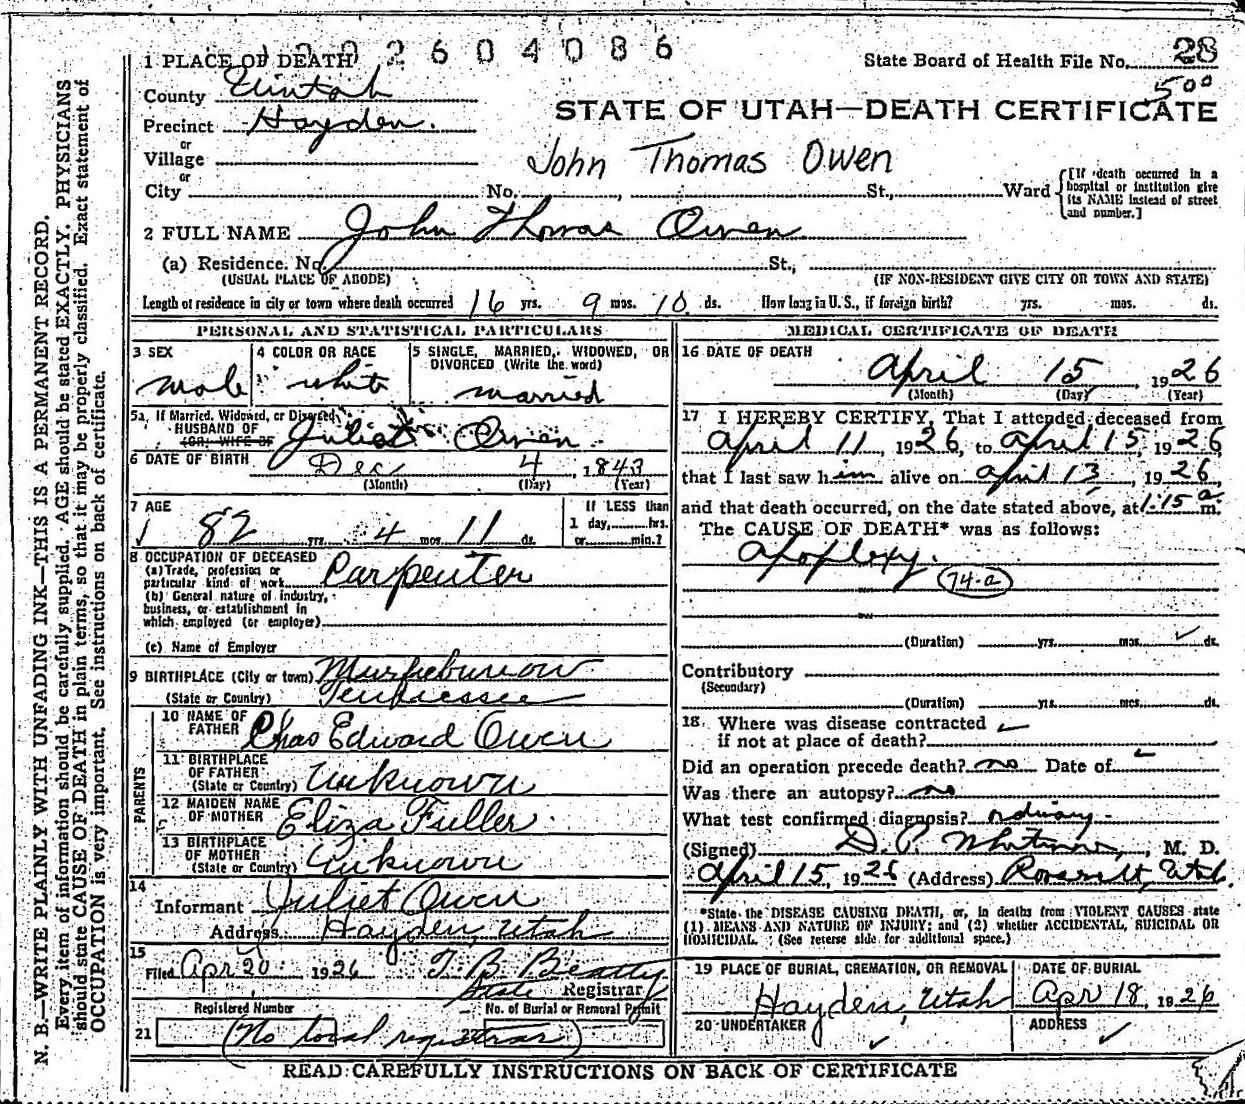 1 PLACE OF DEATH 1 9 0 2 6 0 4 0 8 6
State Board of Health File No. 28
5 00
County Uintah
STATE OF UTAH—DEATH CERTIFICATE
Precinct Hayden.
or
Village
John Thomas Owen
or
City No. , St., Ward [If death occurred in a hospital or institution give its NAME instead of street and number.]
2 FULL NAME John Thomas Owen
(a) Residence. No. St.,
(USUAL PLACE OF ABODE) (IF NON-RESIDENT GIVE CITY OR TOWN AND STATE)
Length of residence in city or town where death occurred 16 yrs. 9 mos. 10 ds. How long in U. S., if foreign birth? yrs. mos. ds.
PERSONAL AND STATISTICAL PARTICULARS
3 SEX
male
4 COLOR OR RACE
white
5 SINGLE, MARRIED, WIDOWED, OR
DIVORCED (Write the word)
married
5a If Married, Widowed, or Divorced
HUSBAND OF
(OR) WIFE OF Juliet Owen
6 DATE OF BIRTH Dec 4, 1843
(Month) (Day) (Year)
7 AGE
82 yrs. 4 mos. 11 ds.
If LESS than
1 day, hrs.
or min.?
8 OCCUPATION OF DECEASED
(a) Trade, profession or
particular kind of work Carpenter
(b) General nature of industry,
business, or establishment in
which employed (or employer)
(c) Name of Employer
9 BIRTHPLACE (City or town) Murfieburow
(State or Country) Tennessee
PARENTS
10 NAME OF
FATHER Chas Edward Owen
11 BIRTHPLACE
OF FATHER
(State or Country) Unknown
12 MAIDEN NAME
OF MOTHER Eliza Fuller
13 BIRTHPLACE
OF MOTHER
(State or Country) Unknown
14
Informant Juliet Owen
Address Hayden, Utah
15
Filed Apr 20 1926 T. B. Beatty
State Registrar
Registered Number No. of Burial or Removal Permit
21 (No local registrar) 22
MEDICAL CERTIFICATE OF DEATH
16 DATE OF DEATH
April 15, 1926
(Month) (Day) (Year)
17 I HEREBY CERTIFY, That I attended deceased from
April 11, 1926, to April 15, 1926,
that I last saw him alive on April 13, 1926,
and that death occurred, on the date stated above, at 1:15 a. m.
The CAUSE OF DEATH* was as follows:
apoplexy.
74-a
(Duration) yrs. mos. ds.
Contributory
(Secondary)
(Duration) yrs. mos. ds.
18 Where was disease contracted
if not at place of death?
Did an operation precede death? no Date of
Was there an autopsy? no
What test confirmed diagnosis? ordinary
(Signed) D. P. Whitmore, M. D.
April 15, 1926 (Address) Roosevelt, Utah.
*State the DISEASE CAUSING DEATH, or, in deaths from VIOLENT CAUSES state
(1) MEANS AND NATURE OF INJURY; and (2) whether ACCIDENTAL, SUICIDAL OR
HOMICIDAL. (See reverse side for additional space.)
19 PLACE OF BURIAL, CREMATION, OR REMOVAL
Hayden, Utah
DATE OF BURIAL
Apr 18, 1926
20 UNDERTAKER
ADDRESS
READ CAREFULLY INSTRUCTIONS ON BACK OF CERTIFICATE
N. B.—WRITE PLAINLY WITH UNFADING INK—THIS IS A PERMANENT RECORD.
Every item of information should be carefully supplied. AGE should be stated EXACTLY. PHYSICIANS
should state CAUSE OF DEATH in plain terms, so that it may be properly classified. Exact statement of
OCCUPATION is very important. See instructions on back of certificate.